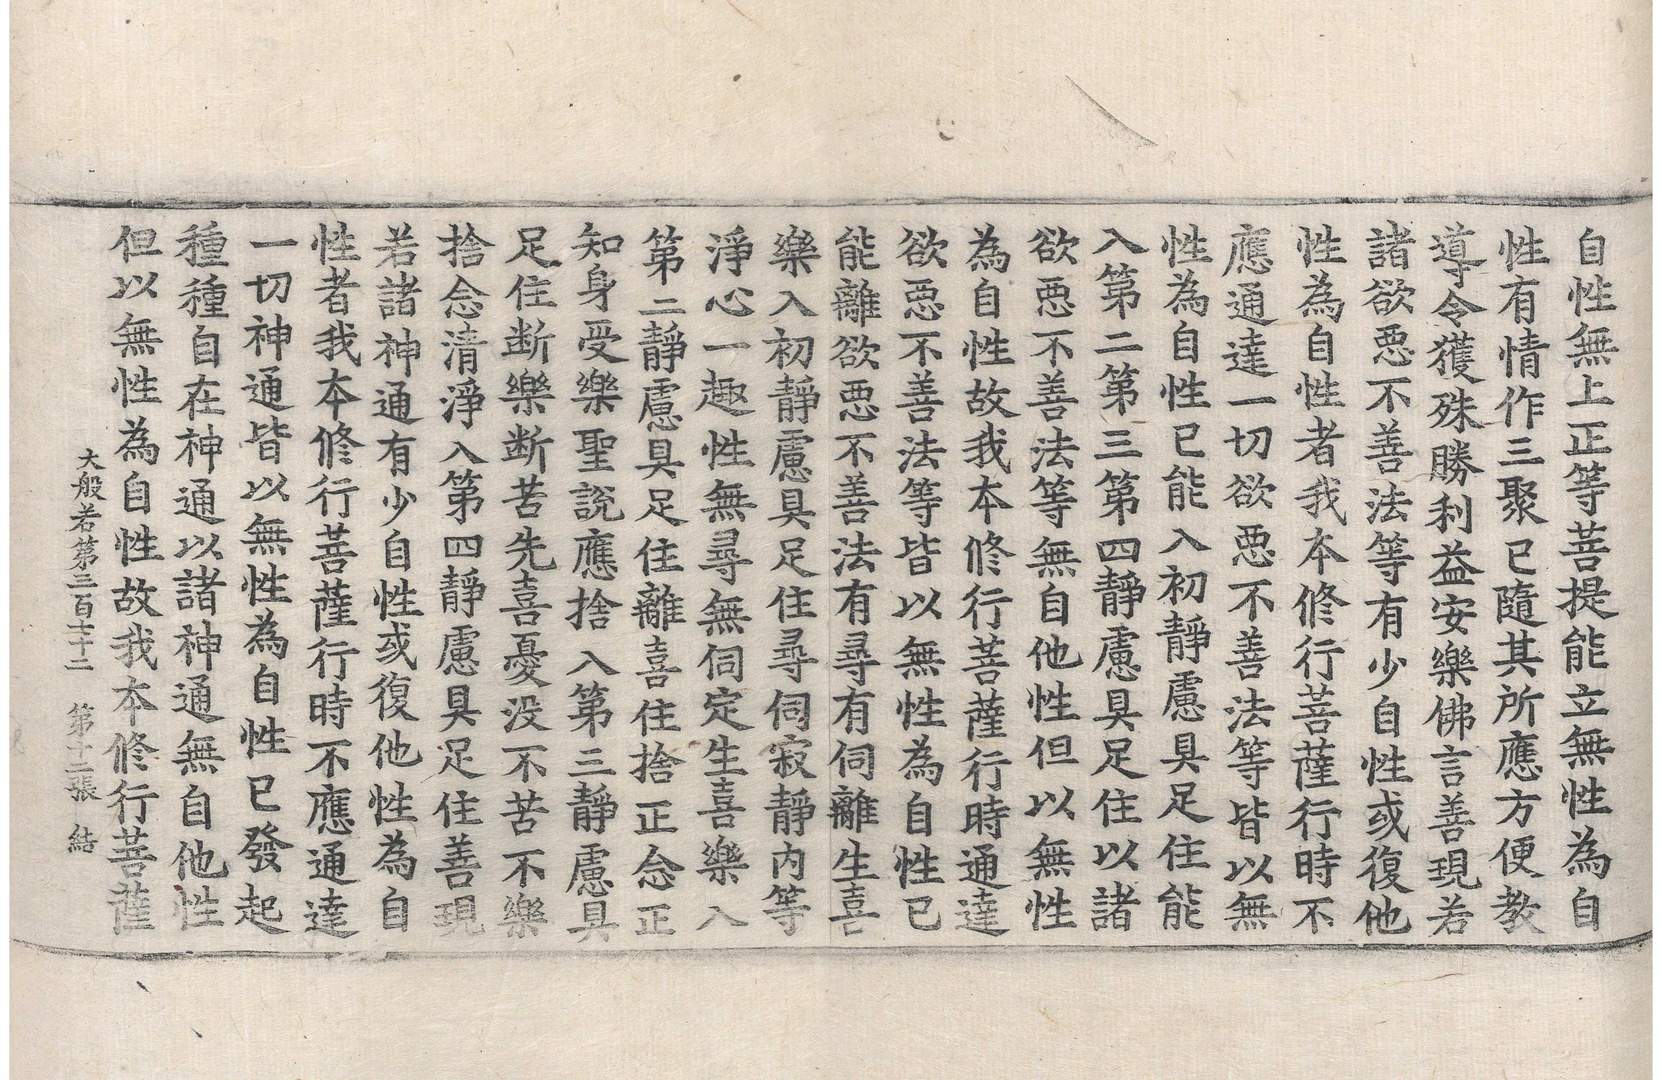 自性無上正等菩提能立無性為自
性有情作三聚已隨其所應方便教
導令獲殊勝利益安樂佛言善現若
諸欲惡不善法等有少自性或復他
性為自性者我本修行菩薩行時不
應通達一切欲惡不善法等皆以無
性為自性已能入初靜慮具足住能
入第二第三第四靜慮具足住以諸
欲惡不善法等無自他性但以無性
為自性故我本修行菩薩行時通達
欲惡不善法等皆以無性為自性已
能離欲惡不善法有尋有伺離生喜
樂入初靜慮具足住尋伺寂靜內等
淨心一趣性無尋無伺定生喜樂入
第二靜慮具足住離喜住捨正念正
知身受樂聖說應捨入第三靜慮具
足住断樂断苦先喜憂没不苦不樂
捨念清淨入第四靜慮具足住善現
若諸神通有少自性或復他性為自
性者我本修行菩薩行時不應通達
一切神通皆以無性為自性已發起
種種自在神通以諸神通無自他性
但以無性為自性故我本修行菩薩
大般若第三百七十二 第十二張 結